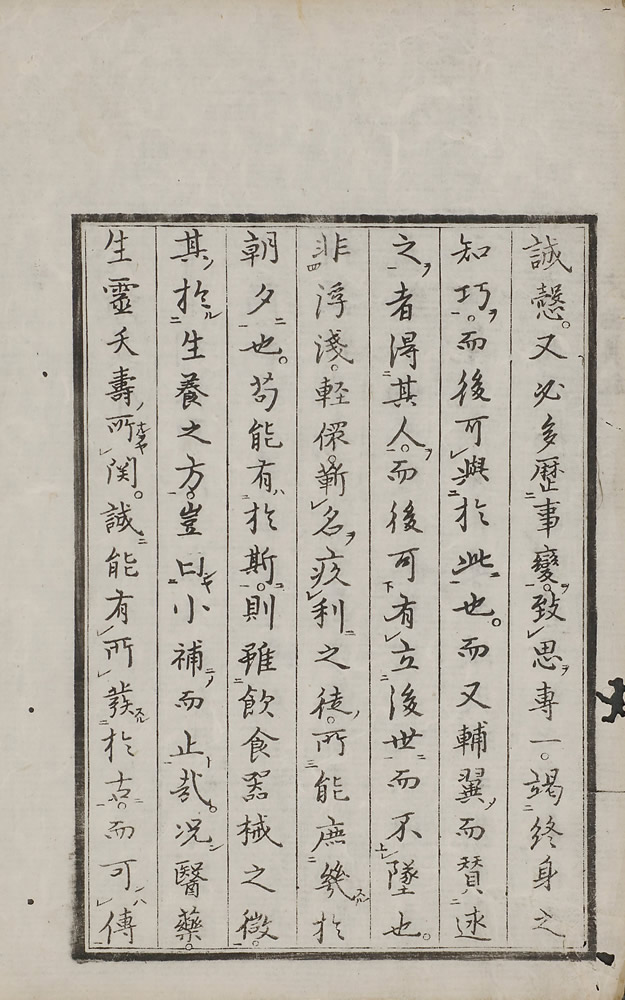 誠愨。又必多歴事變。致思專一。竭終身之
知巧。而後可與於此也。而又輔翼而賛述
之者得其人。而後可有立後世而不墜也。
非浮淺。軽儇。蘄名。疚利之徒。所能庶幾於
朝夕也。苟能有於斯。則雖飲食器械之微。
其於生養之方。豈曰小補而止哉。况醫藥。
生靈夭壽所関。誠能有所發於古。而可傳